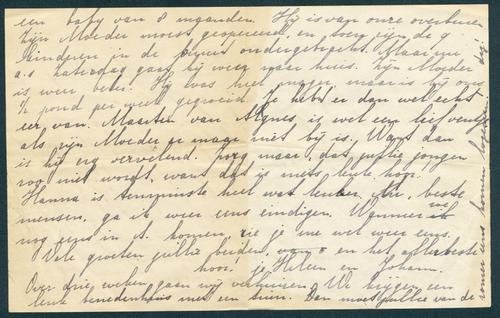 een baby van 8 maanden. Hij is van onze overburen
Zijn Moeder moest geopereerd, en toen zijn de 9
kinderen in de buurt ondergebracht. Maar nu
a.s. Zaterdag gaat hij weer naar huis. Zijn Moeder
is weer beter. Hij was heel mager maar is bij ons
½ pond per week gegroeid. Je hebt er dan wel echt
eer van. Maarten van Agnes, is wel een lief ventje
als zijn Moeder er maar niet bij is. Want dan
is hij erg vervelend. Zorg maar, dat jullie jongen
zoo niet wordt, want dat is niets leuk hoor.
Hanna is tenminste heel wat leuker. Nu, beste
mensen, ga ik weer eens eindigen. Wanneer we
nog eens in A. komen, zie je me wel weer eens.
Vele groeten jullie beiden, en het allerbeste
hoor. je Heleen en Johann.
Over drie weken gaan wij verhuizen. We krijgen een
leuk benedenhuis met een tuin. Dan moet jullie van de
zomer eens komen logeeren
dag!